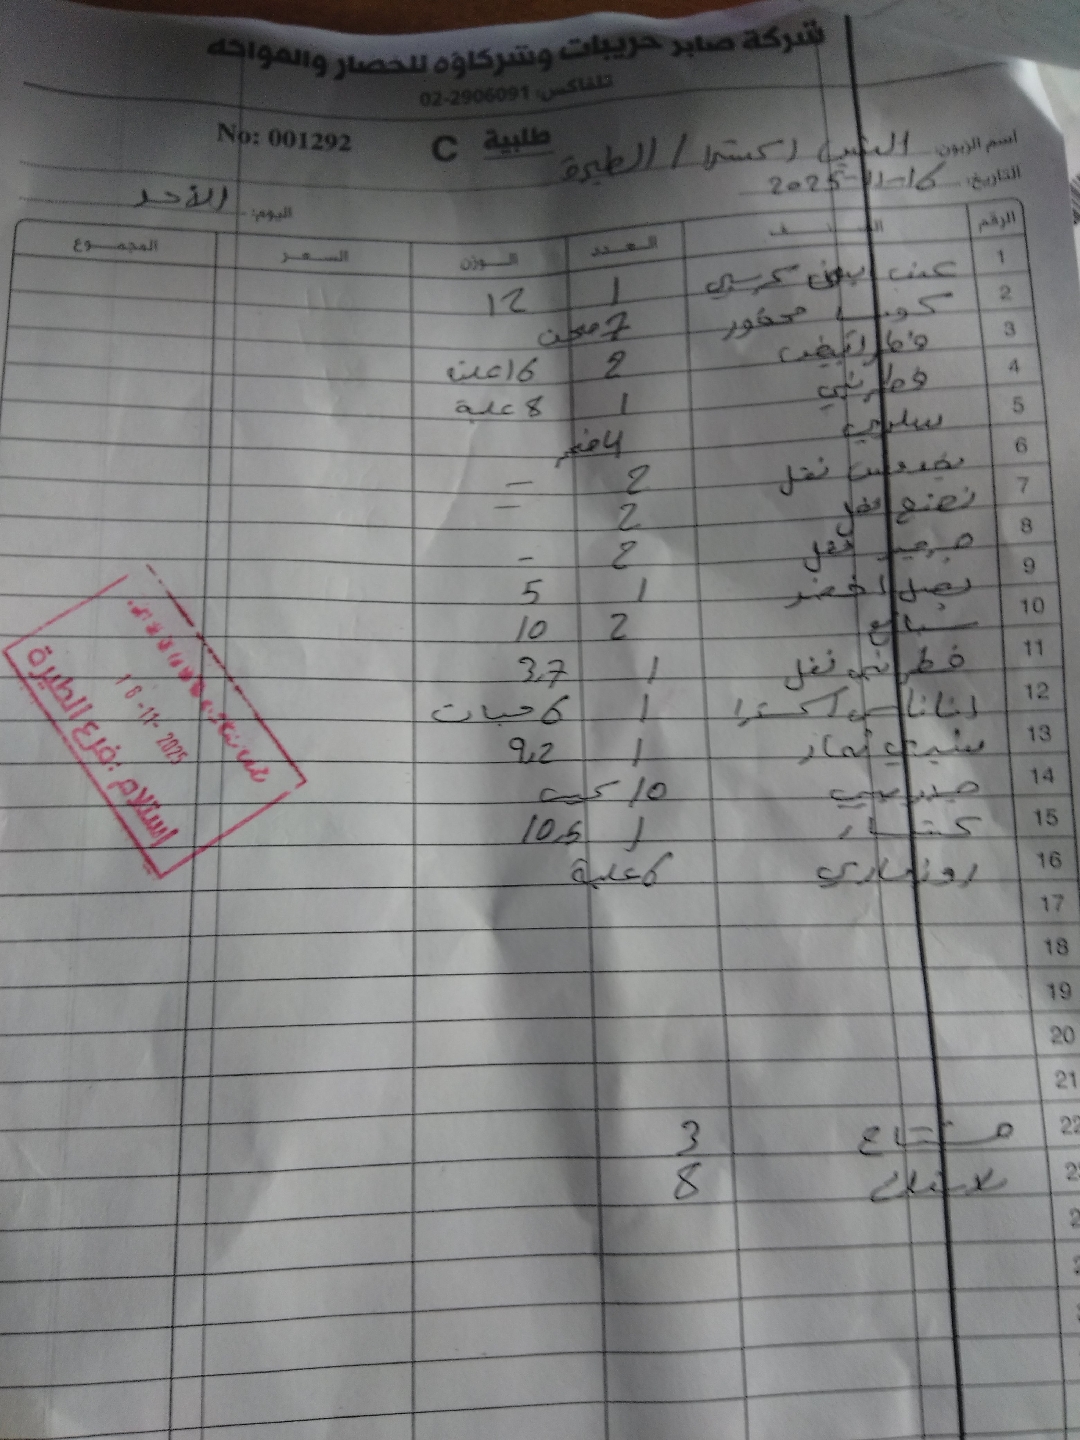 شركة صابر حريبات وشركاؤه للخضار والفواكه
تلفاكس: 02-2906091
No: 001292 C طلبية
اسم الزبون: اكسترا / الطيرة
التاريخ: 16-11-2025
اليوم: الأحد
الرقم الصنف العدد الوزن السعر المجموع
1 عنب 1 12
2 محفور 7 صحن
3 فطر ابيض 2 16 علبة
4 فطر بني 1 8 علبة
5 4
6 نقل 2 -
7 نعنع نقل 2 -
8 جرجير نقل 2 -
9 بصل اخضر 1 5
10 سبانخ 2 10
11 فطر بني نقل 1 3,7
12 اناناس اكسترا 1 6 حبات
13 1 9,2
14 10 كيس
15 1 10,5
16 روزماري 6 علبة
17
18
19
20
21
22 3
8
استلام : فرع الطيرة
16-11-2025